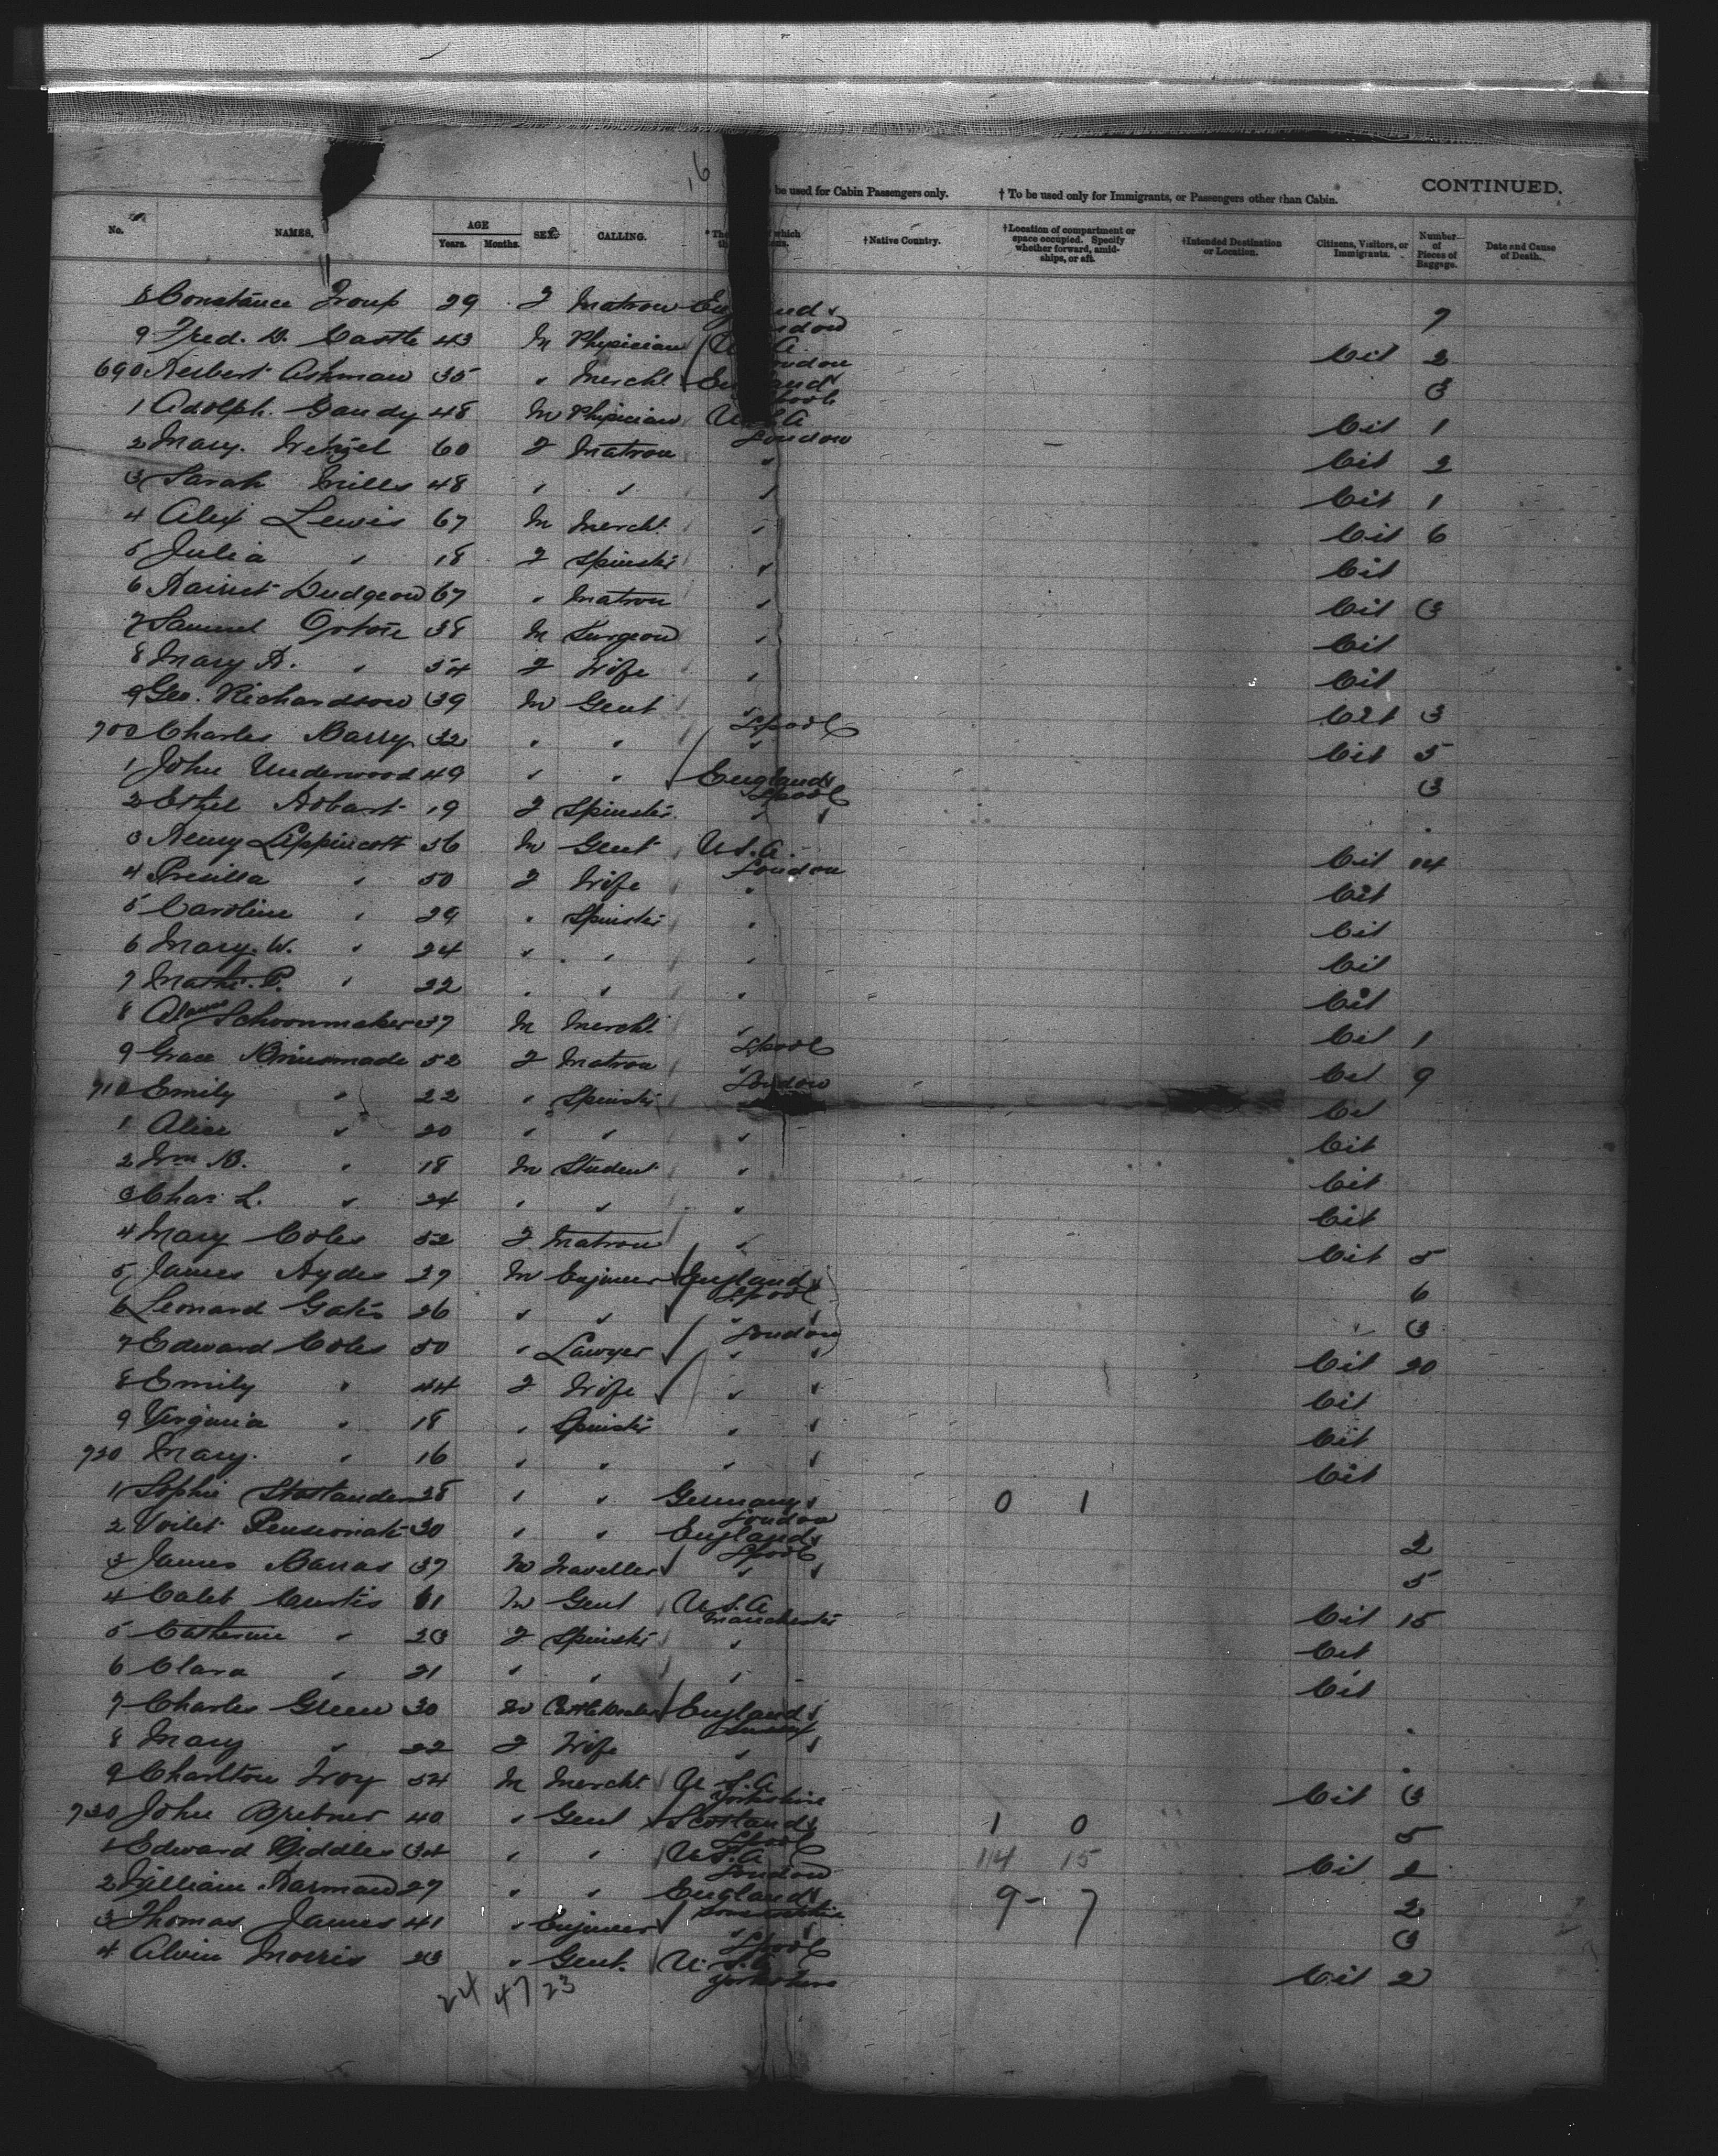 16
be used for Cabin Passengers only. † To be used only for Immigrants, or Passengers other than Cabin. CONTINUED.
No. NAMES. AGE Years. Months. SEX. CALLING. *The which †Native Country. †Location of compartment or space occupied. Specify whether forward, amidships, or aft. †Intended Destination or Location. Citizens, Visitors, or Immigrants. Number of Pieces of Baggage. Date and Cause of Death.
8 Constance Troup 29 F Matron England 7
9 Fred. D. Castle 43 M Physician London U.S.A. Cit 2
690 Herbert Ashman 35 " Mercht London England 3
1 Adolph. Gandy 48 M Physician U.S.A Cit 1
2 Mary. Wetzel 60 F Matron London Cit 2
3 Sarah Mills 48 " " " Cit 1
4 Alex Lewis 67 M Mercht " Cit 6
5 Julia " 18 F Spinster " Cit
6 Harriet Dudgeon 67 " Matron " Cit 3
7 Samuel Orton 38 M Surgeon " Cit
8 Mary A. " 54 F Wife " Cit
9 Geo. Richardson 39 M Gent " Cit 3
700 Charles Barry 32 " " Lpool " Cit 5
1 John Underwood 49 " " England 3
2 Ethel Hobart 19 F Spinster Lpool "
3 Henry Lippincott 56 M Gent U.S.A. Cit 14
4 Precilla " 50 F Wife London " Cit
5 Caroline " 29 " Spinster " Cit
6 Mary. W. " 24 " " " Cit
7 P. " 22 " " " Cit
8 Schoonmaker 37 M Mercht " Cit 1
9 Grace Brinsmade 52 F Matron Lpool " Cit 9
710 Emily " 22 " Spinster London Cit
1 Alice " 20 " " " Cit
2 Wm B. " 18 M Student " Cit
3 Chas L. " 24 " " " Cit
4 Mary Coles 52 F Matron " Cit 5
5 James Hydes 27 M Engineer England 6
6 Leonard Gates 26 " " Lpool " 3
7 Edward Coles 50 " Lawyer London " Cit 20
8 Emily " 44 F Wife " Cit
9 Virginia " 18 " Spinster " Cit
720 Mary. " 16 " " " Cit
1 Sophie 28 " " Germany 0 1
2 30 " " London England 2
3 James Barras 37 M Traveller Lpool " 5
4 Caleb Curtis 61 M Gent U.S.A Cit 15
5 Catherine " 23 F Spinster Manchester " Cit
6 Clara " 21 " " " Cit
7 Charles Green 30 M Cattle Dealer England
8 Mary " 22 F Wife Sussex "
9 Charlton Troy 54 M Mercht U.S.A Cit 3
730 John Brebner 40 " Gent Yorkshire Scotland 1 0 5
1 Edward Biddles 34 " " Lpool U.S.A 114 15 Cit 2
2 William Harman 27 " " London England 9 - 7 2
3 Thomas James 41 " Engineer " 3
4 Alvin Morris 23 " Gent. Lpool U.S.A Cit 2
Yorkshire
24 47 23